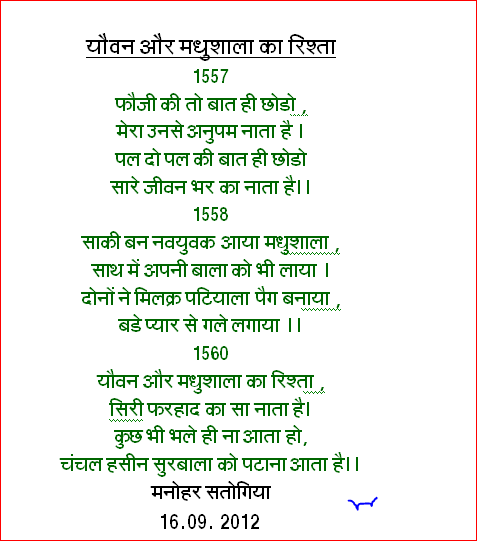 यौवन और मधुशाला का रिश्ता
1557
फौजी की तो बात ही छोडो ,
मेरा उनसे अनुपम नाता है ।
पल दो पल की बात ही छोडो
सारे जीवन भर का नाता है।।
1558
साकी बन नवयुवक आया मधुशाला ,
साथ में अपनी बाला को भी लाया ।
दोनों ने मिलक्र पटियाला पैग बनाया ,
बडे प्यार से गले लगाया ।।
1560
यौवन और मधुशाला का रिश्ता ,
सिरी फरहाद का सा नाता है।
कुछ भी भले ही ना आता हो,
चंचल हसीन सुरबाला को पटाना आता है।।
मनोहर सतोगिया
16.09. 2012